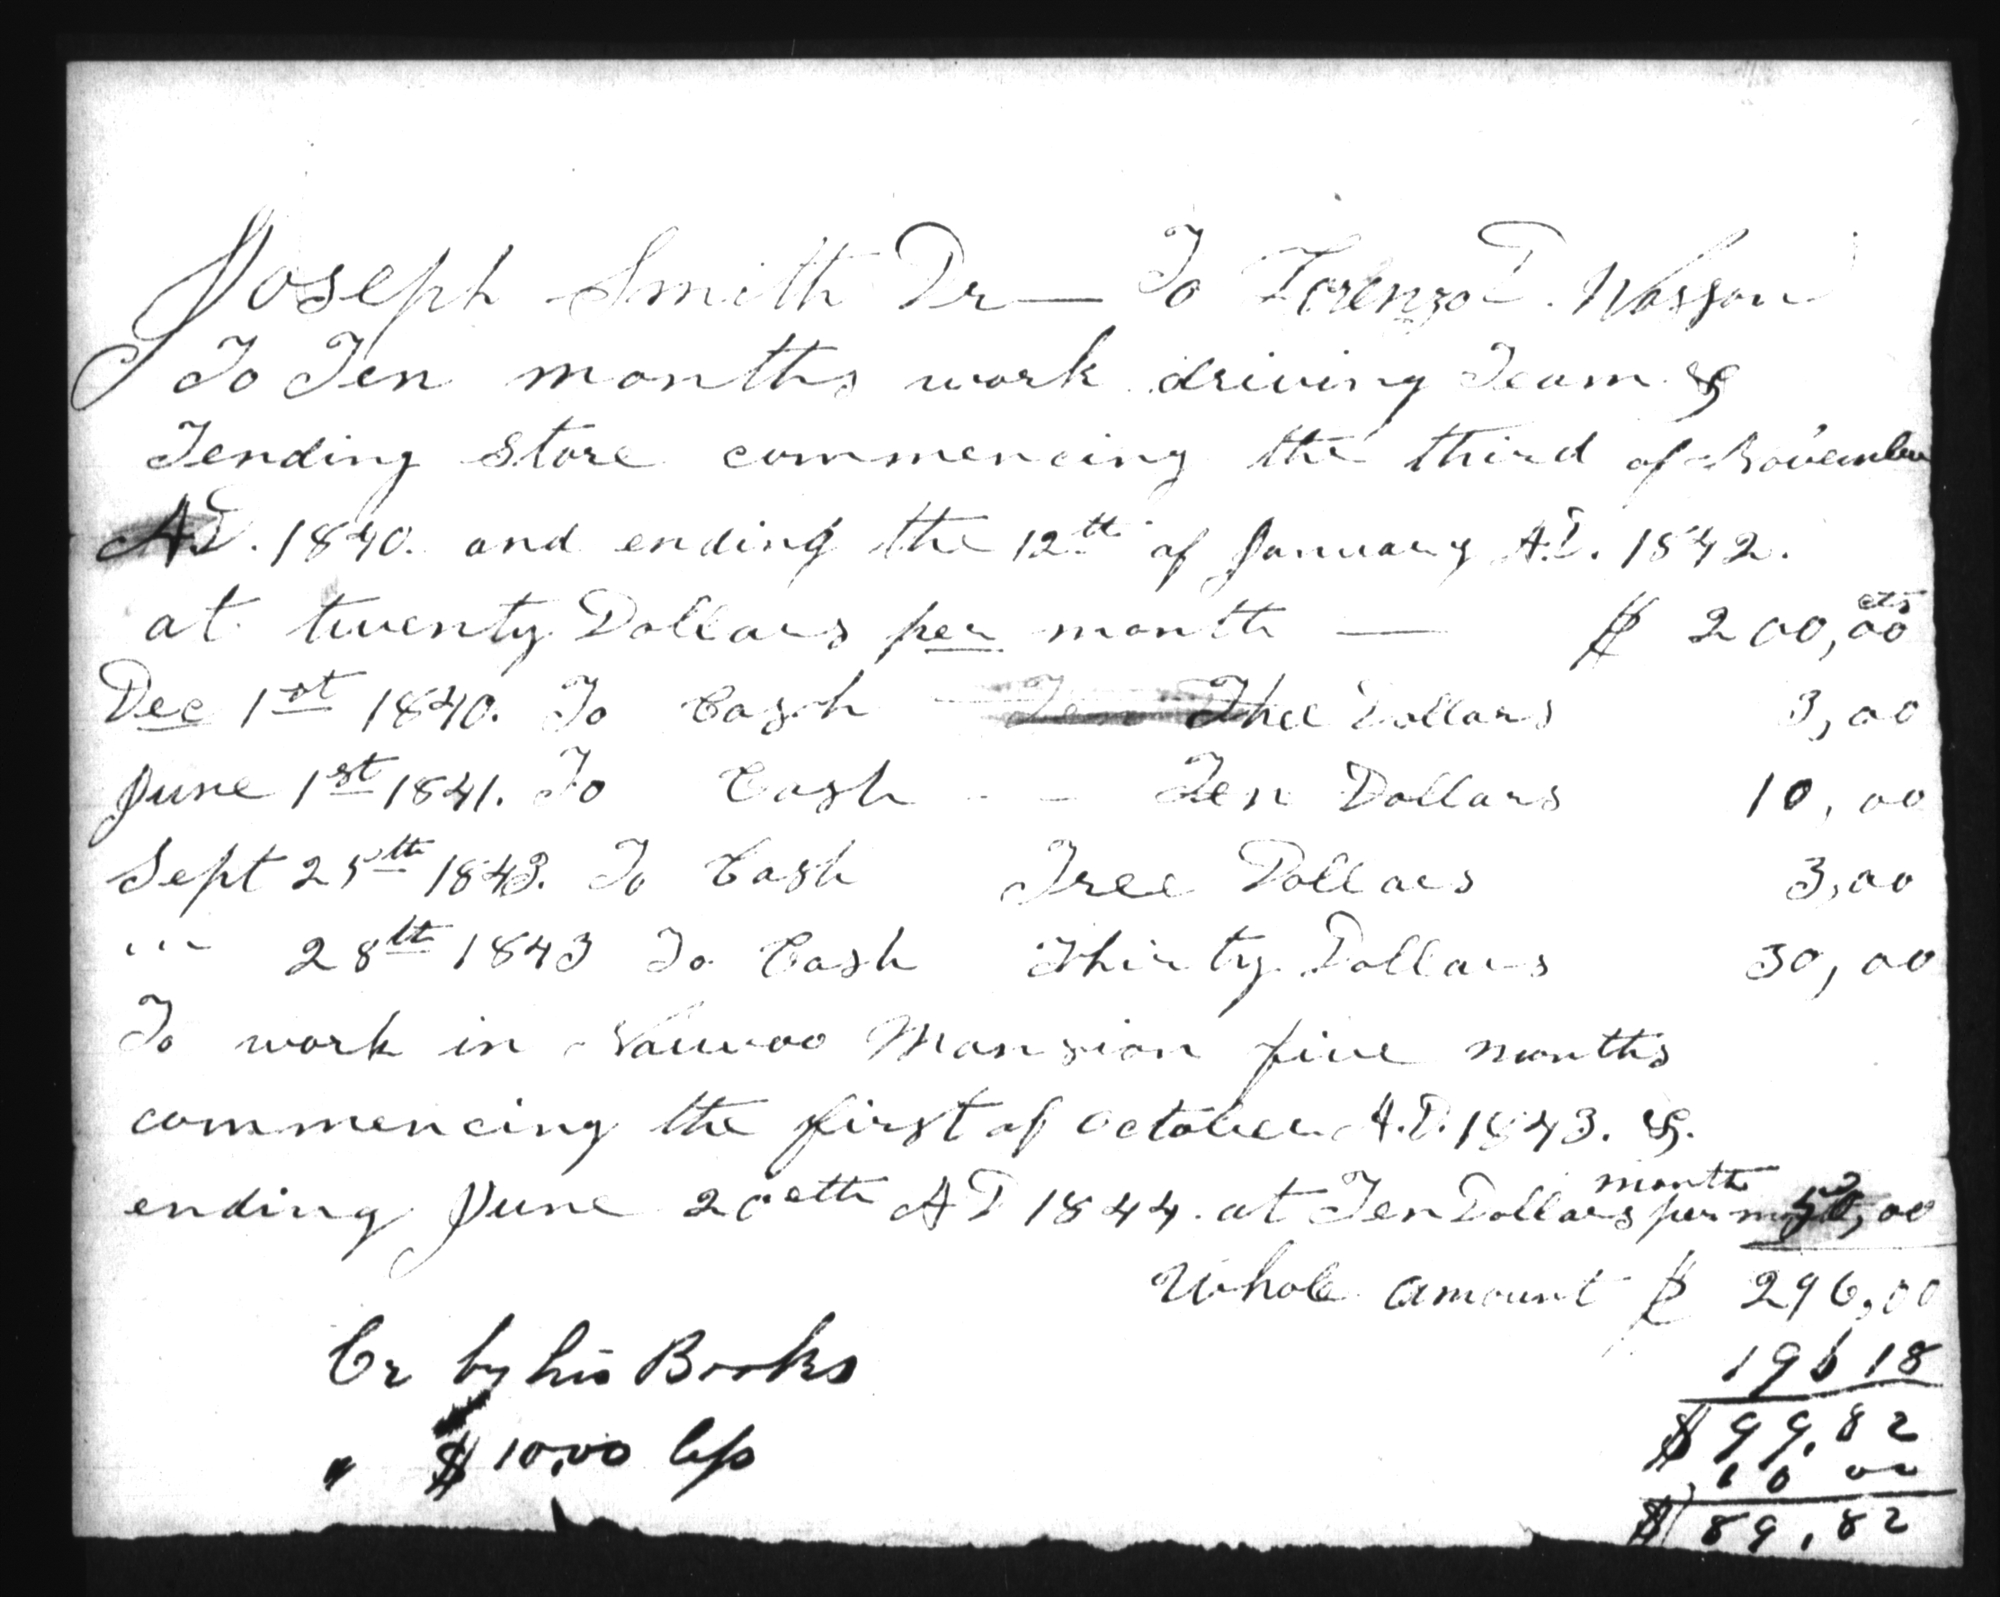 Joseph Smith Dr — To Lorenzo D. Wasson
To Ten months work driving Team &
Tending store commencing the third of November
A.D. 1840. and ending the 12th of January A.D. 1842.
at twenty Dollars per month — $ 200,00 cts
Dec 1st 1840. To Cash - Ten Thee Dollars 3,00
June 1st 1841. To Cash - - Ten Dollars 10,00
Sept 25th 1843. To Cash Tree Dollars 3,00
" 28th 1843 To Cash Thirty Dollars 30,00
To work in Nauvoo Mansion five months
commencing the first of october A.D. 1843. &.
ending June 20eth A D 1844. at Ten Dollars per month 50,00
Whole amount $ 296,00
Cr by his Books 196 18
$ 99,82
" $10,00 less 10 00
$ 89,82